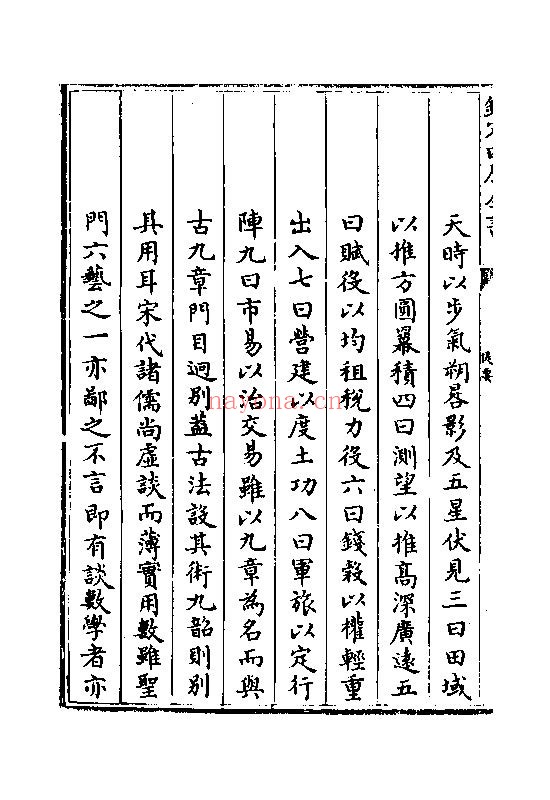 天時以步氣朔晷影及五星伏見三曰田域
以推方圓冪積四曰測望以推髙深廣逺五
曰賦役以均租稅力役六曰錢榖以權輕重
出入七曰營建以度土功八曰軍旅以定行
陣九曰市易以治交易雖以九章為名而與
古九章門目迥别蓋古法設其術九韶則别
其用耳宋代諸儒尚虚談而薄實用數雖聖
門六藝之一亦鄙之不言即有談數學者亦
提要
nayona.cn